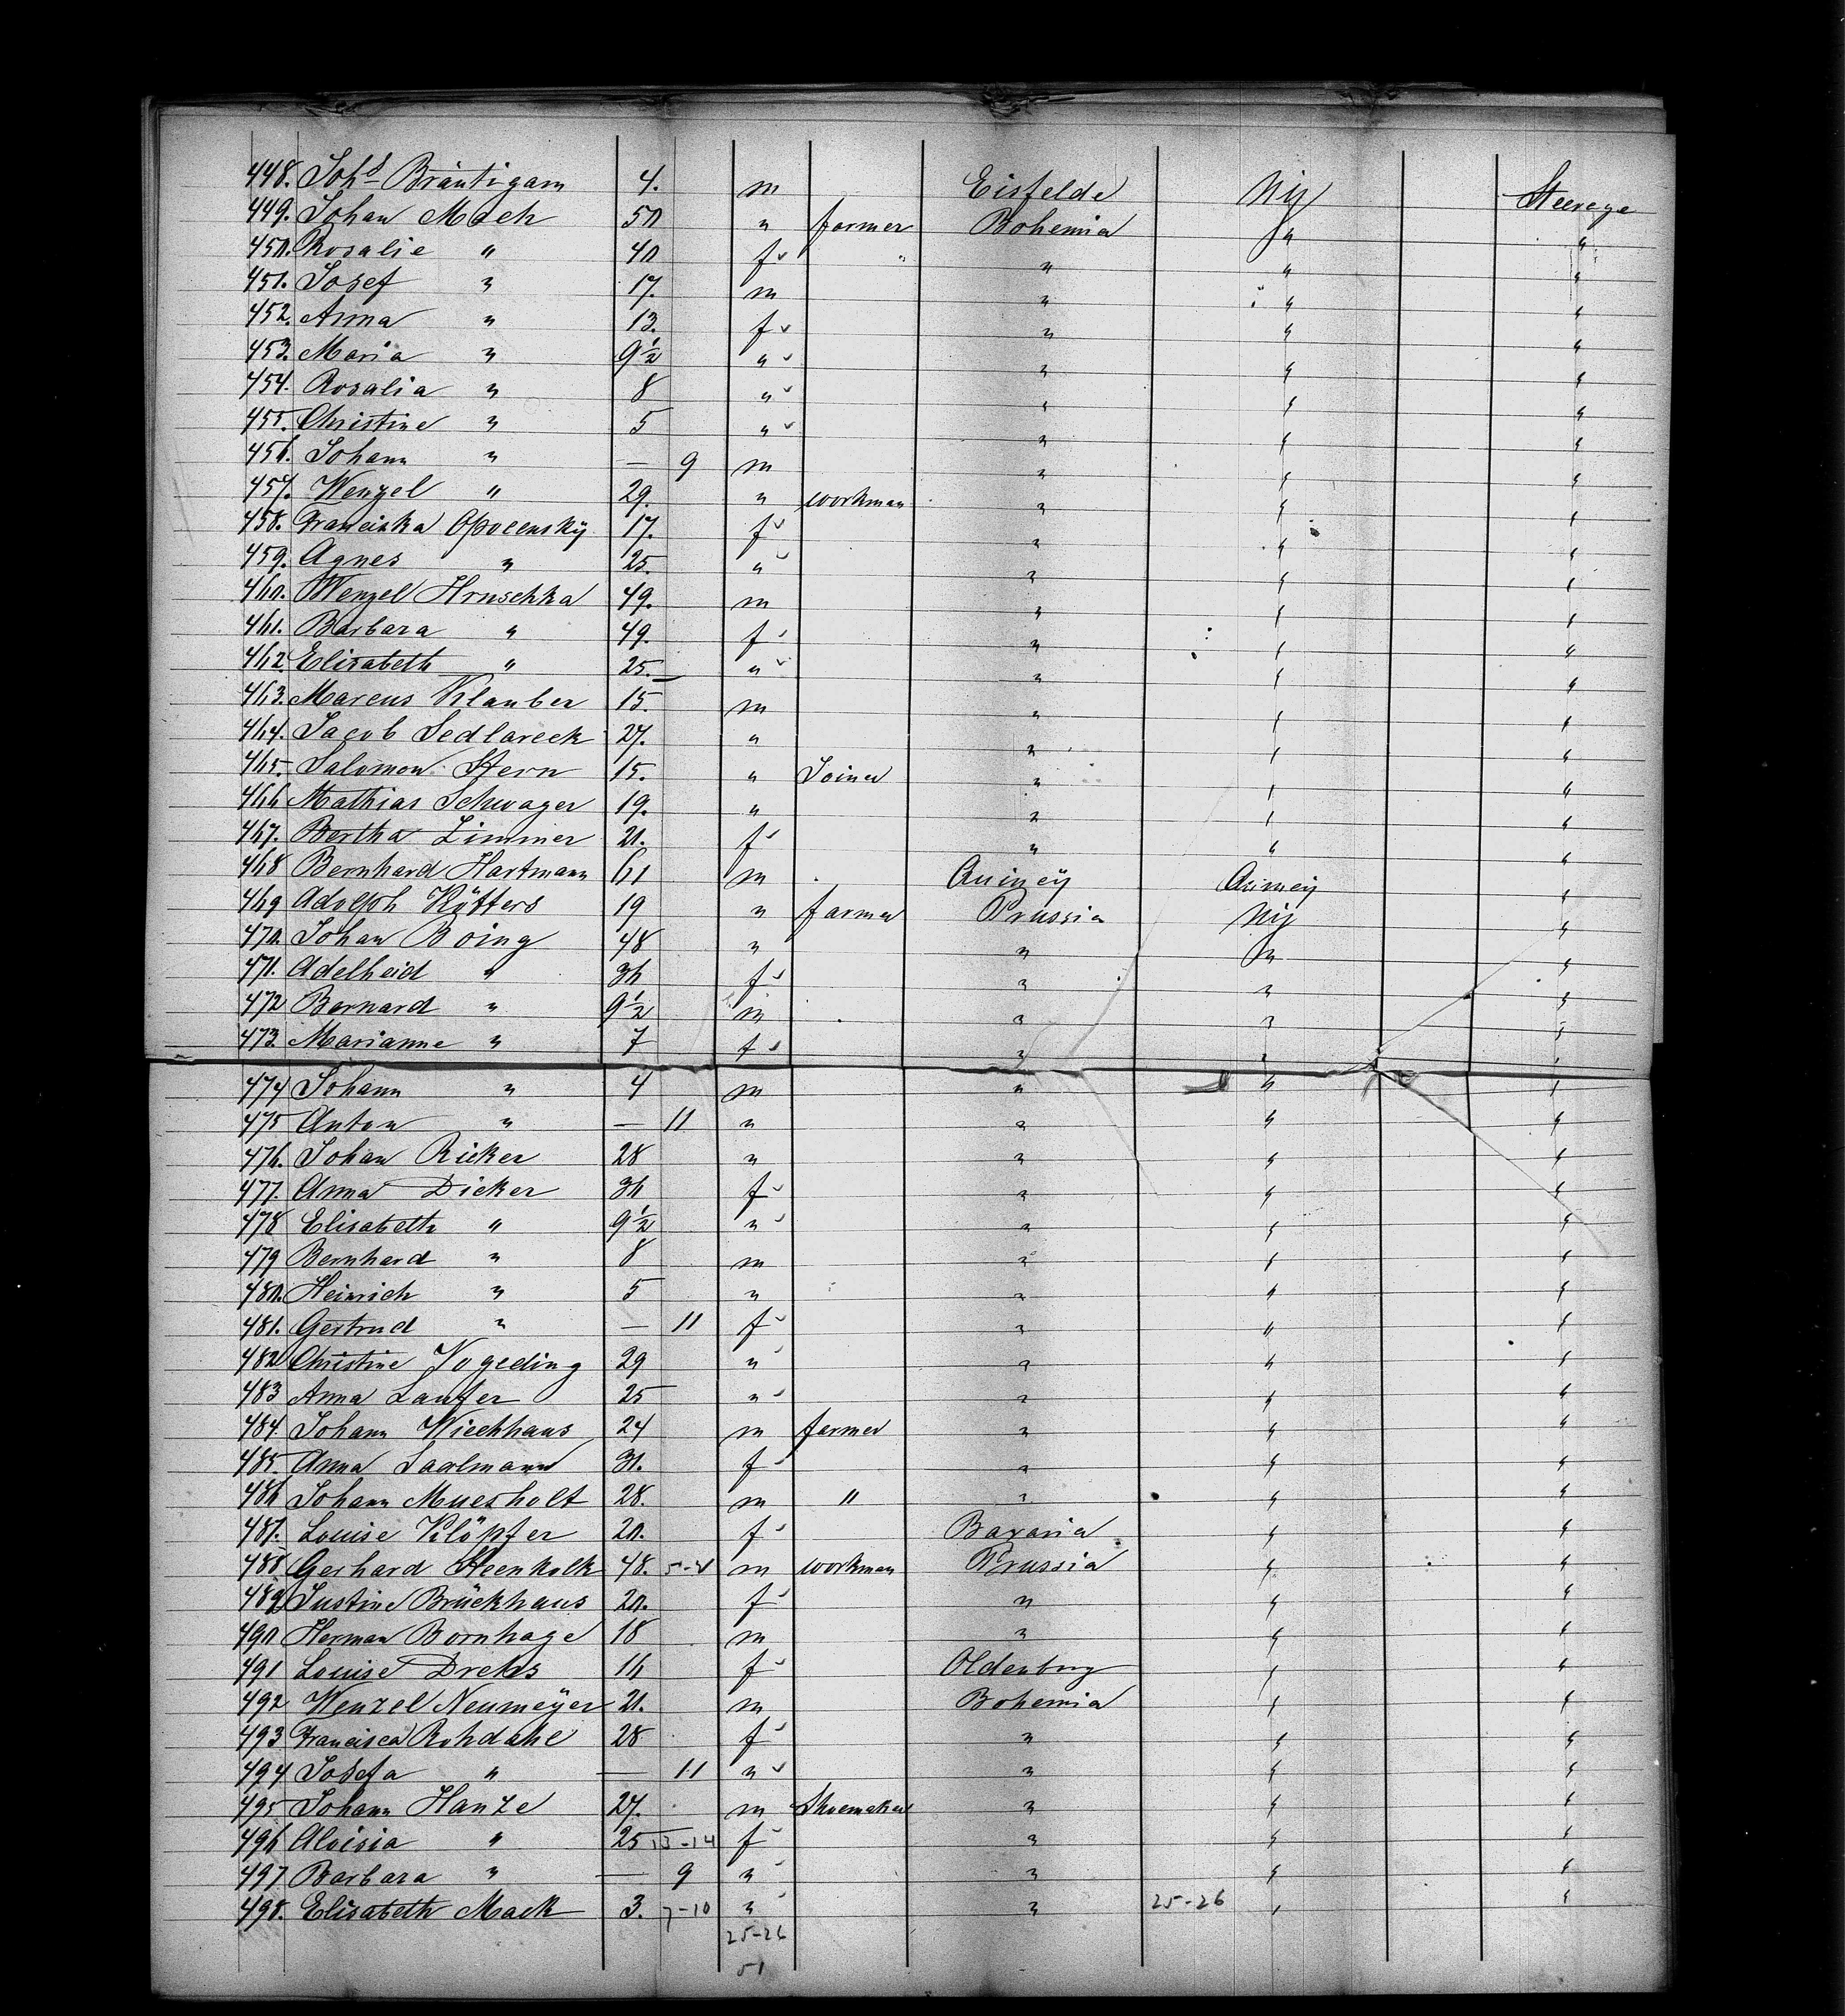 448. Johs Bräutigam 4. m Eisfelde NY Steerage
449. Johan Mach 50 " farmer Bohemia " "
450. Rosalie " 40 f " " " "
451. Josef " 17. m " " "
452. Anna " 13. f " " "
453. Maria " 9½ " " " "
454. Rosalia " 8 " " " "
455. Christine " 5 " " " "
456. Johann " — 9 m " " "
457. Wenzel " 29. " workman " " "
458. Franciska Opocensky 17. f " " "
459. Agnes " 25. " " " "
460. Wenzel Hruschka 49. m " " "
461. Barbara " 49. f " " "
462. Elisabeth " 25. " " " "
463. Marcus Klauber 15. m " " "
464. Jacob Sedlareck 27. " " " "
465. Salomon Stern 15. " Joiner " " "
466 Mathias Schwager 19. " " " "
467. Bertha Zimmer 20. f " " "
468 Bernhard Hartmann 61 m Quincÿ Quincy "
469 Adolph Kötters 19 " farmer Prussia NY "
470. Johan Boing 48 " " " "
471. Adelheid " 36 f " " "
472 Bernard " 9½ m " " "
473. Marianne " 7 f " " "
474 Johann " 4 m " " "
475 Anton " — 11 " " " "
476. Johan Ricker 28 " " " "
477. Anna Dicker 36 f " " "
478 Elisabeth " 9½ " " " "
479 Bernhard " 8 m " " "
480. Heinrich " 5 " " " "
481. Gertrud " — 11 f " " "
482 Christine Vogeding 29 " " " "
483 Anna Laufer 25 " " " "
484. Johann Wiechhaus 24 m farmer " " "
485. Anna Saalmann 31. f " " "
486 Johann Muesholt 28. m " " " "
487. Louise Klöpfer 20. f Bavaria " "
488 Gerhard Steenkolk 48. m workman Prussia " "
489. Justine Brückhaus 20. f " " "
490 Herman Bornhage 18 m " " "
491 Louise Drehs 16 f Oldenburg " "
492 Wenzel Neumeÿer 21. m Bohemia " "
493 Francisca Rohdahl 28. f " " "
494 Josefa " — 11 " " " "
495 Johann Hanze 27. m Shoemaker " " "
496 Aloisia " 25 13-14 f " " "
497 Barbara " — 9 " " " "
498. Elisabeth Mack 3. 7-10 " " 25-26 " "
25-26
51